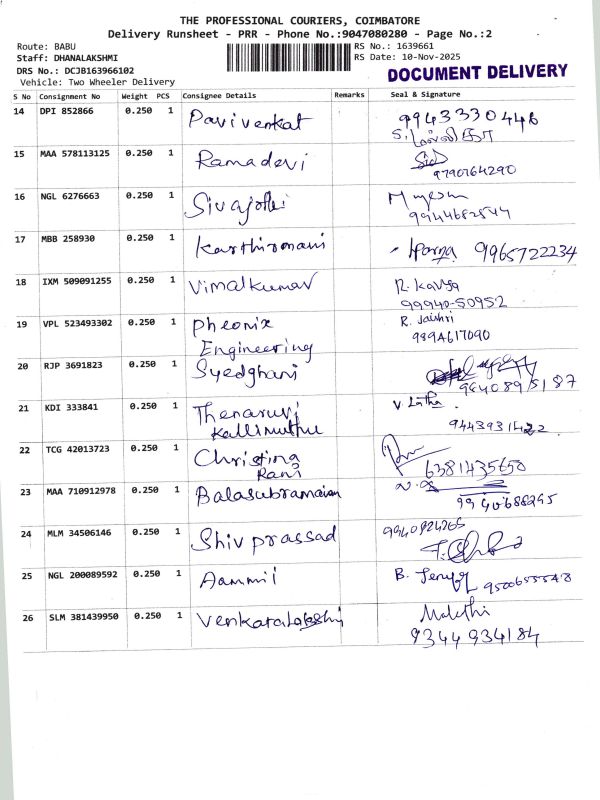 THE PROFESSIONAL COURIERS, COIMBATORE
Delivery Runsheet - PRR - Phone No.:9047080280 - Page No.:2
Route: BABU
RS No.: 1639661
Staff: DHANALAKSHMI
RS Date: 10-Nov-2025
DRS No.: DCJB163966102
DOCUMENT DELIVERY
Vehicle: Two Wheeler Delivery
S No Consignment No Weight PCS Consignee Details Remarks Seal & Signature
14 DPI 852866 0.250 1 Pavivenkat 9943330446
15 MAA 578113125 0.250 1 Ramadevi
9790764290
16 NGL 6276663 0.250 1 Sivajothi
9944682544
17 MBB 258930 0.250 1 Karthiomani 9965722234
18 IXM 509091255 0.250 1 Vimalkumar R. Kavya
99940-50952
19 VPL 523493302 0.250 1 Pheonix R. Jaishri
Engineering 9894617090
20 RJP 3691823 0.250 1 Syedghani
9840895187
21 KDI 333841 0.250 1 Thenaruvi V. Latha
Kallimuthu
22 TCG 42013723 0.250 1 Christina
Rani 6381435650
23 MAA 710912978 0.250 1 Balasubramaian
9940688295
24 MLM 34506146 0.250 1 Shiv prassad
25 NGL 200089592 0.250 1 Aammii B.
26 SLM 381439950 0.250 1 Venkatalakshmi Malathi
9344934184